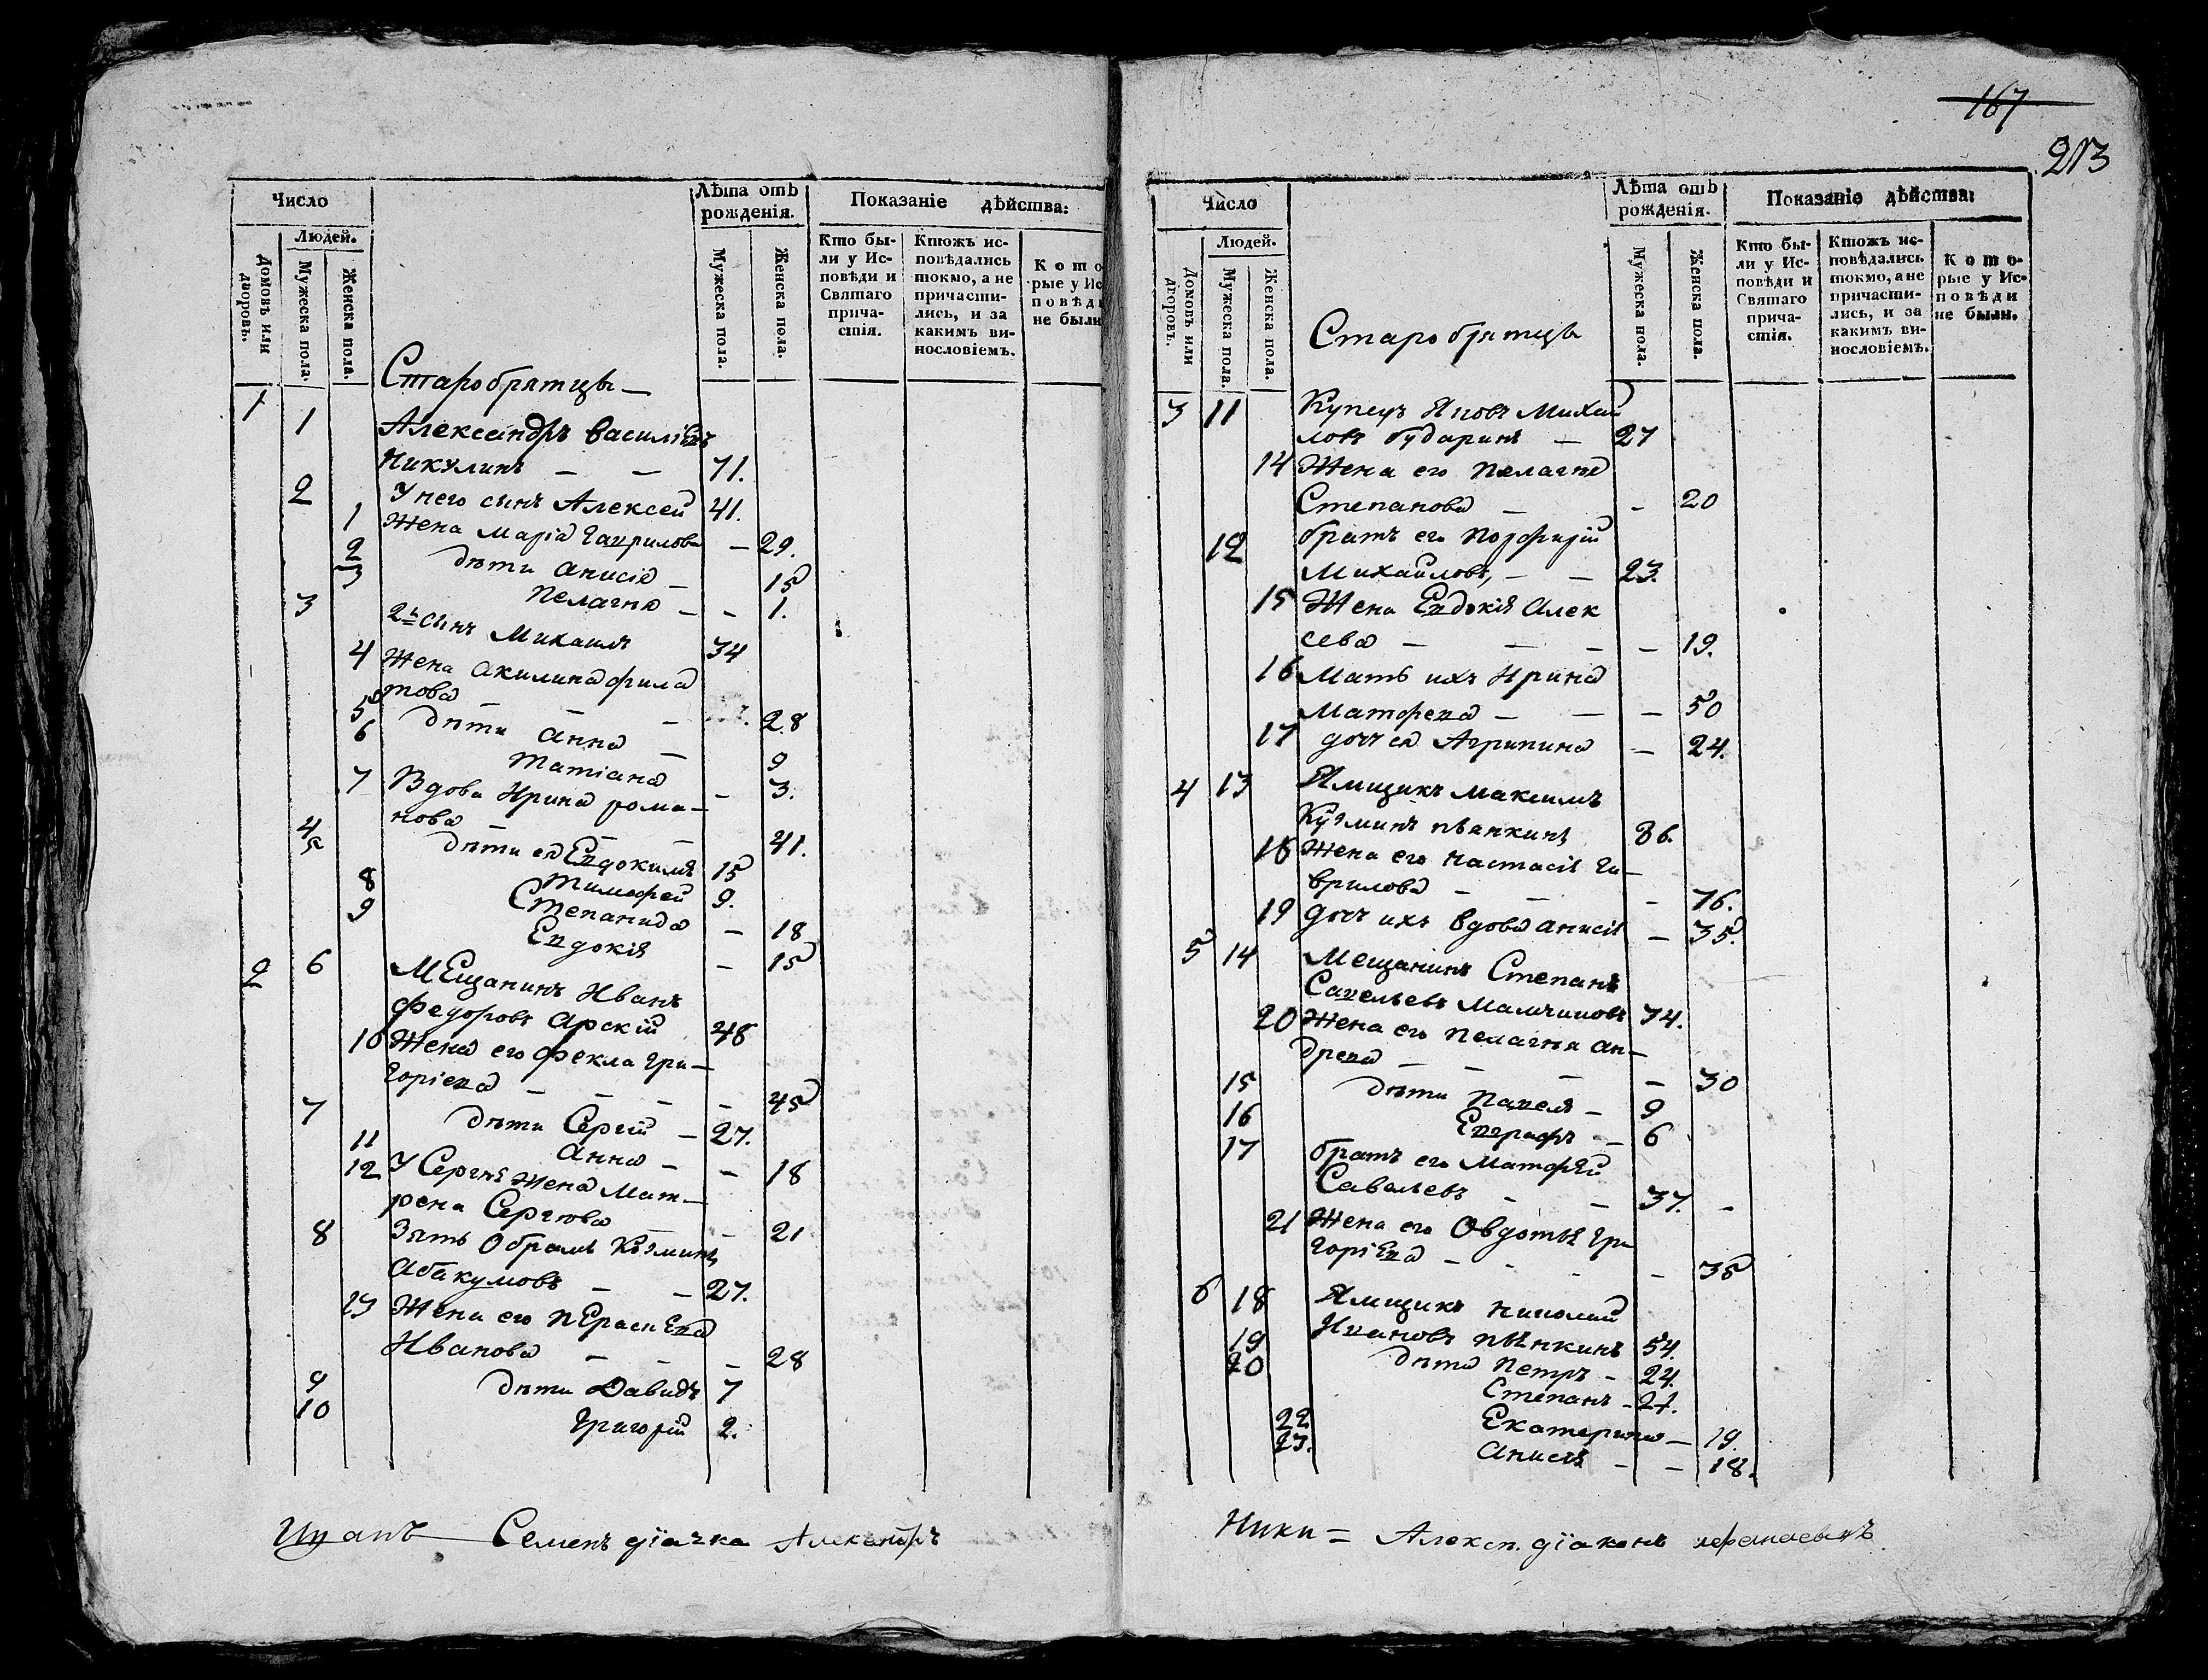 167
213
Число
Людей.
Домовъ или дворовъ.
Мужеска пола.
Женска пола.
Лѣта отъ рожденія.
Мужеска пола.
Женска пола.
Показаніе дѣйства:
Кто бы-
ли у Ис-
повѣди и
Святаго
прича-
стія.
Ктожъ ис-
повѣдались
токмо, а не
причасти-
лись, и за
какимъ ви-
нословіемъ.
Кото
рые у Ис
повѣди
не были
Старобрятцы —
1 1 Александръ Василіевъ
Никулинъ — — 71.
2 У него сынъ Алексей 41.
1 Жена Маріа Гаврилова — 29.
2 дѣти Анисіа — 15
3 Пелагиа — — 1.
3 2й сынъ Михаилъ 34
4 Жена Акилина Фила
това — — — 28
5 дѣти Анна — 9
6 Татіана — 3.
7 Вдова Ирина Рома-
нова — — — 41.
4 дѣти ея Евдокимъ 15
5 Тимофей 9.
8 Степанида — 18
9 Евдокія — 15
2 6 Мещанинъ Иванъ
Федоровъ Арскій 48
10 Жена его Фекла Гри-
горіева — — — — 45
7 дѣти Сергій — 27.
11 Анна — — 18
12 У Сергия жена Мат-
рена Сергѣева — — 21
8 Зять Обрамъ Козминъ
Абакумовъ — — 27.
13 Жена его Пераскева
Иванова — — — 28
9 дѣти Давидъ 7
10 Григорій 2.
Семенъ діачка Александръ
Число
Людей.
Домовъ или дворовъ.
Мужеска пола.
Женска пола.
Старобрятцы
Лѣта отъ рожденія.
Мужеска пола.
Женска пола.
Показаніе дѣйства:
Кто бы-
ли у Ис-
повѣди и
Святаго
прича-
стія.
Ктожъ ис-
повѣдались
токмо, а не
причасти-
лись, и за
какимъ ви-
нословіемъ.
Кото-
рые у Ис-
повѣди
не были.
3 11 Купецъ Яковъ Михаи
ловъ Бударинъ — 27
14 Жена его Пелагиа
Степанова — — 20
12 братъ его Порфирій
Михайловъ, — — 23.
15 Жена Евдокія Алек
сева — — — — 19.
16 Мать ихъ Ирина
Матфева — — — 50
17 дочь ея Агрипина — 24.
4 13 Ямщикъ Максимъ
Кузминъ Пѣнкинъ 86.
18 Жена его Настасія Га-
врилова — — — 76.
19 дочь ихъ вдова Анисія — 35.
5 14 Мещанинъ Степанъ
Савельевъ 34.
20 Жена его Пелагия Ан-
древа — — — — 30
15 дѣти Павелъ — 9
16 Евграфъ — 6
17 братъ его Матфѣй
Савельевъ — — 37. -
21 Жена его Овдотья Гри
горіева — — — — 35
6 18 Ямщикъ Николай
Ивановъ Пѣнкинъ 54.
19 дѣти Петръ — 24.
20 Степанъ — 21.
22 Екатерина — 19.
23. Анисія — — 18.
Ники = Алексп. діаконъ